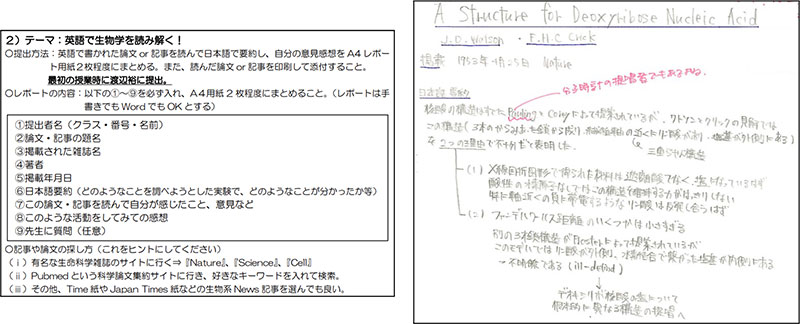 2）テーマ：英語で生物学を読み解く！
○提出方法：英語で書かれた論文or記事を読んで日本語で要約し、自分の意見感想をA4レポー
ト用紙2枚程度にまとめる。また、読んだ論文or記事を印刷して添付すること。
最初の授業時に渡辺裕に提出。
○レポートの内容：以下の①～⑨を必ず入れ、A4用紙2枚程度にまとめること。（レポートは手
書きでもWordでもOKとする）
①提出者名（クラス・番号・名前）
②論文・記事の題名
③掲載された雑誌名
④著者
⑤掲載年月日
⑥日本語要約（どのようなことを調べようとした実験で、どのようなことが分かったか等）
⑦この論文・記事を読んで自分が感じたこと、意見など
⑧このような活動をしてみての感想
⑨先生に質問（任意）
○記事や論文の探し方（これをヒントにしてください）
（ⅰ）有名な生命科学雑誌のサイトに行く⇒『Nature』、『Science』、『Cell』
（ⅱ）Pubmedという科学論文集約サイトに行き、好きなキーワードを入れて検索。
（ⅲ）その他、Time紙やJapan Times紙などの生物系News記事を選んでも良い。
A Structure for Deoxyribose Nucleic Acid
J.D. Watson・F.H.C Crick
掲載 1953年4月25日 Nature
分子時計の提唱者でもあるよね。
日本語要約
核酸の構造はすでにPaulingとCoreyによって提案されているが、ワトソンとクリックの見解では
この構造（3本のからみあった鎖から成り、
三重らせん構造
を2つの理由で不十分だと表明した。
(1) X線回折図形で得られた材料は遊離酸でなく、塩になっているはず
酸性の水素原子なしではこの構造を維持する力がはっきりしない
(2) ファンデルワールス距離のいくつかは小さすぎる
別の3本鎖構造がFraserによって提案されているが
このモデルではリン酸が外側、水素結合で繋がった塩基が内側にある
→不明瞭である (ill-defined)
デオキシリボ核酸の塩について
根本的に異なる構造の提唱へ